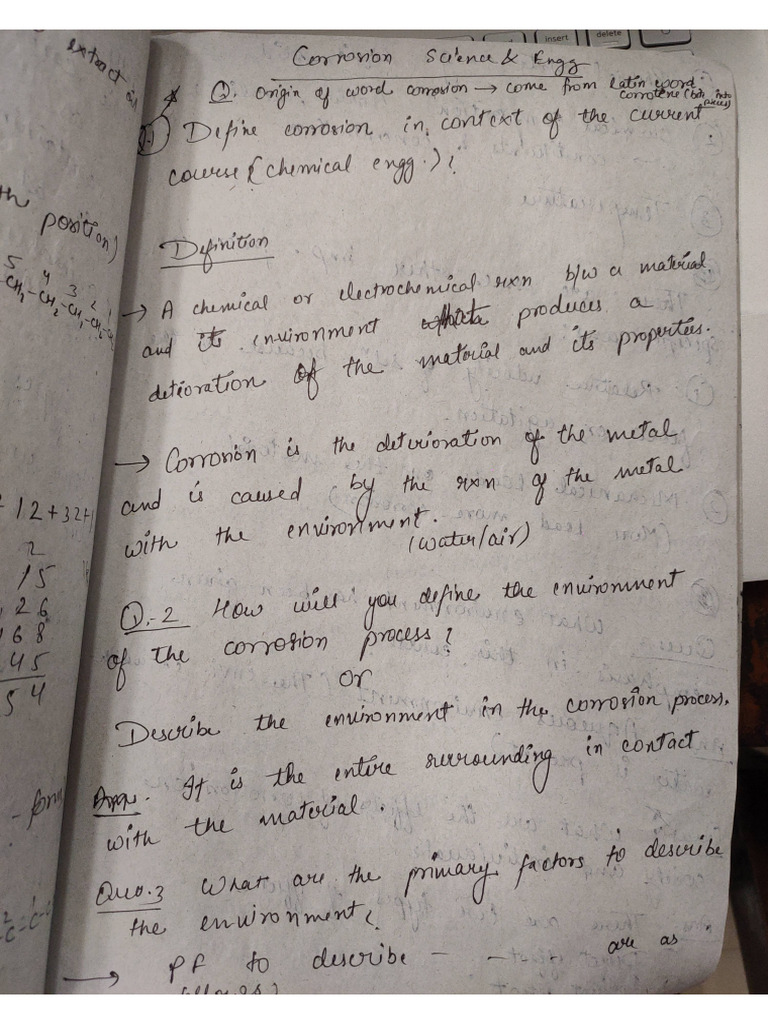 insert
delete
extract
position)
5 4 3 2 1
-CH2-CH2-CH2-CH2-
12+32+
2
15
26
68
45
54
Corrosion Science & Engg
Q. Origin of word corrosion → come from latin word
corrotene (
Define corrosion in context of the current
course {chemical engg.)?
Definition
→ A chemical or electrochemical rxn b/w a material
and its environment produces a
deteoration of the material and its properties.
→ Corrosion is the deterioration of the metal
and is caused by the rxn of the metal
with the environment.
(water/air)
Q.-2 How will you define the environment
of the corrosion process?
or
Describe the environment in the corrosion process.
Ans. It is the entire surrounding in contact
with the material.
Ques.3 What are the primary factors to describe
the environment?
→ PF to describe - - are as